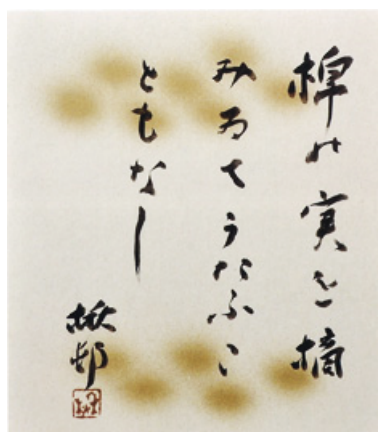 棉の実を摘
みゐてうたふこ
ともなし
楸邨